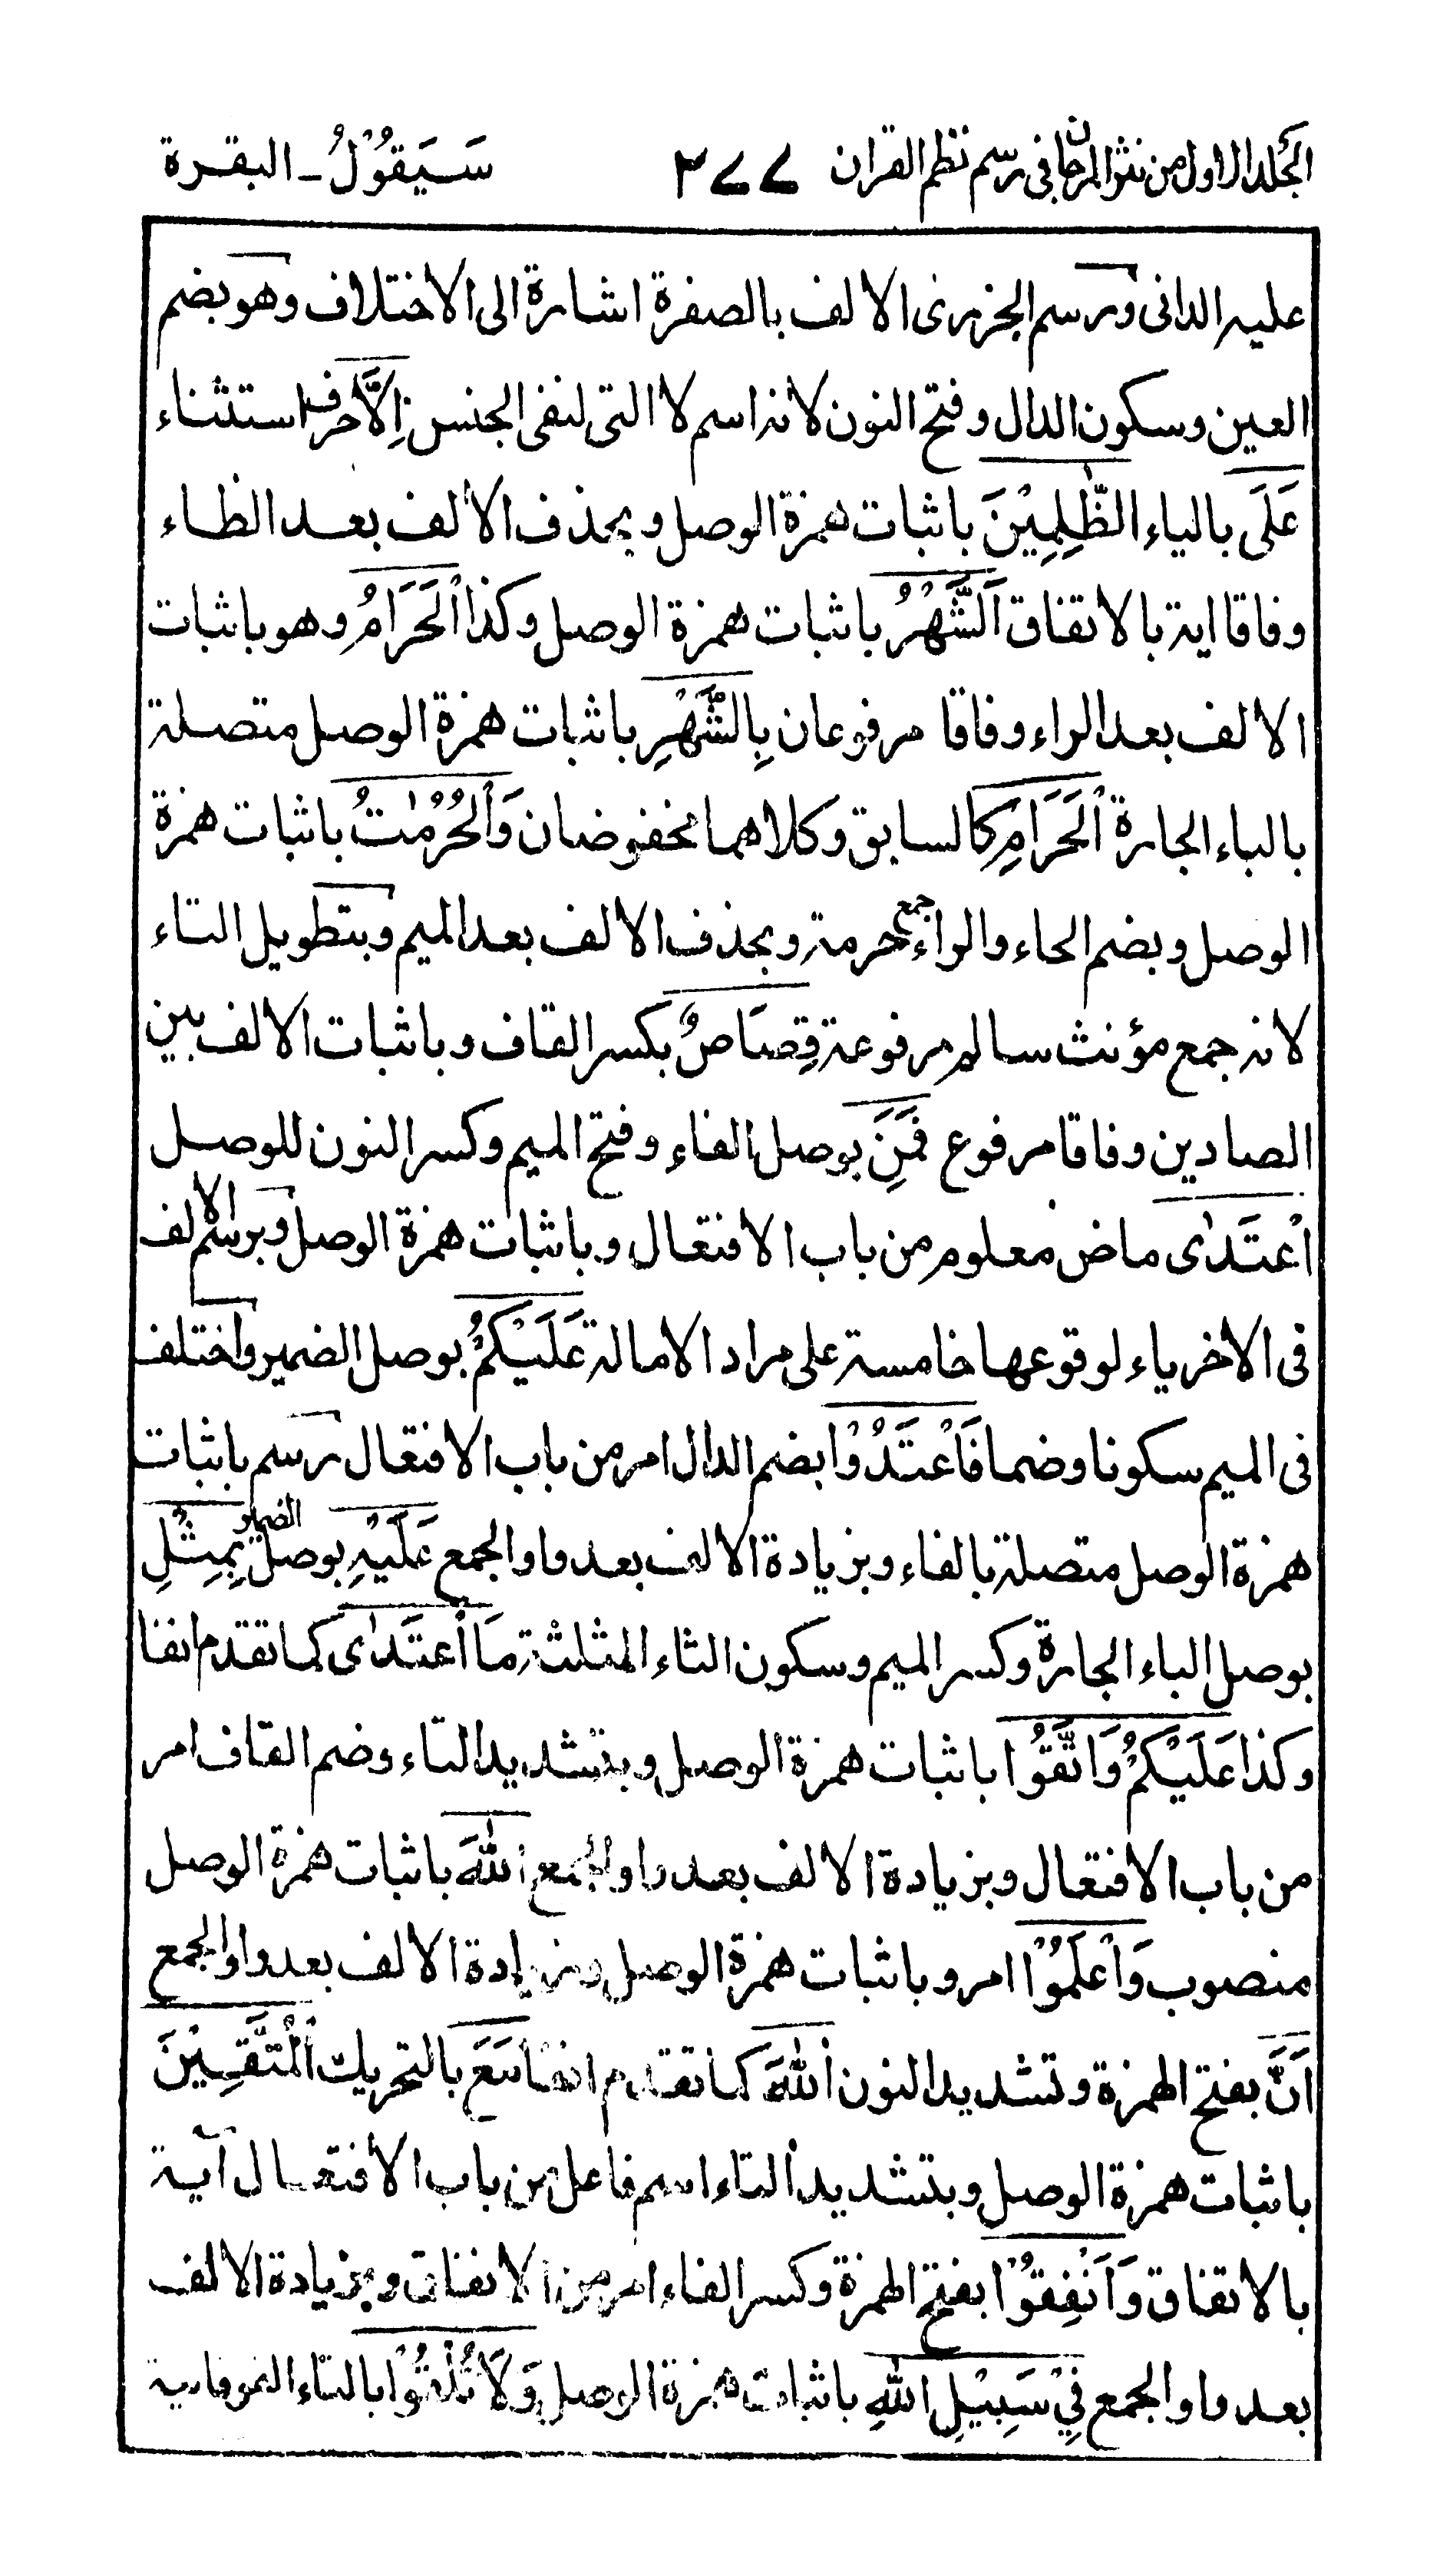 الجلد الاول من نثر المرجان فى رسم نظم القران ٢٧٧ سَيَقُوْلُ ـ البقرة
عليه الدانى ورسم الجزرى الالف بالصفرة اشارة الى الاختلاف وهو بضم
العين وسكون الدال وفتح النون لانه اسم لا التى لنفى الجنس اِلَّا حرف استثناء
عَلَى بالياء الظّٰلِمِيْنَ باثبات همزة الوصل وبحذف الالف بعد الظاء
وفاقا اية بالاتفاق اَلشَّهْرُ باثبات همزة الوصل وكذا اْلحَرَامُ وهو باثبات
الالف بعد الراء وفاقا مرفوعان بِالشَّهْرِ باثبات همزة الوصل متصلة
بالباء الجارة اْلحَرَامِ كالسابق وكلاهما مخفوضان وَاْلحُرُمٰتُ باثبات همزة
الوصل وبضم الحاء والراء جمع حرمة وبحذف الالف بعد الميم وبتطويل التاء
لانه جمع مؤنث سالم مرفوعة قِصَاصٌ بكسر القاف وباثبات الالف بين
الصادين وفاقا مرفوع فَمَنِ بوصل الفاء وفتح الميم وكسر النون للوصل
اعْتَدٰى ماض معلوم من باب الافتعال وباثبات همزة الوصل وبرسم الالف
فى الاخر ياء لوقوعها خامسة على مراد الامالة عَلَيْكُمْ بوصل الضمير واختلف
فى الميم سكونا وضما فَاعْتَدُوْا بضم الدال امر من باب الافتعال رسم باثبات
همزة الوصل متصلة بالفاء وبزيادة الالف بعد واو الجمع عَلَيْهِ بوصل الضمير بِمِثْلِ
بوصل الباء الجارة وكسر الميم وسكون الثاء المثلثة مَا اعْتَدٰى كما تقدم انفا
وكذا عَلَيْكُمْ وَاتَّقُوْا باثبات همزة الوصل وبتشديد التاء وضم القاف امر
من باب الافتعال وبزيادة الالف بعد واو الجمع اللّٰهَ باثبات همزة الوصل
منصوب وَاعْلَمُوْا امر وباثبات همزة الوصل وبزيادة الالف بعد واو الجمع
اَنَّ بفتح الهمزة وتشديد النون اللّٰهَ كما تقدم انفا مَعَ بالتحريك الْمُتَّقِيْنَ
باثبات همزة الوصل وبتشديد التاء اسم فاعل من باب الافتعال آية
بالاتفاق وَاَنْفِقُوْا بفتح الهمزة وكسر الفاء امر من الانفاق وبزيادة الالف
بعد واو الجمع فِيْ سَبِيْلِ اللّٰهِ باثبات همزة الوصل وَلَا تُلْقُوْا بالتاء الفوقانية